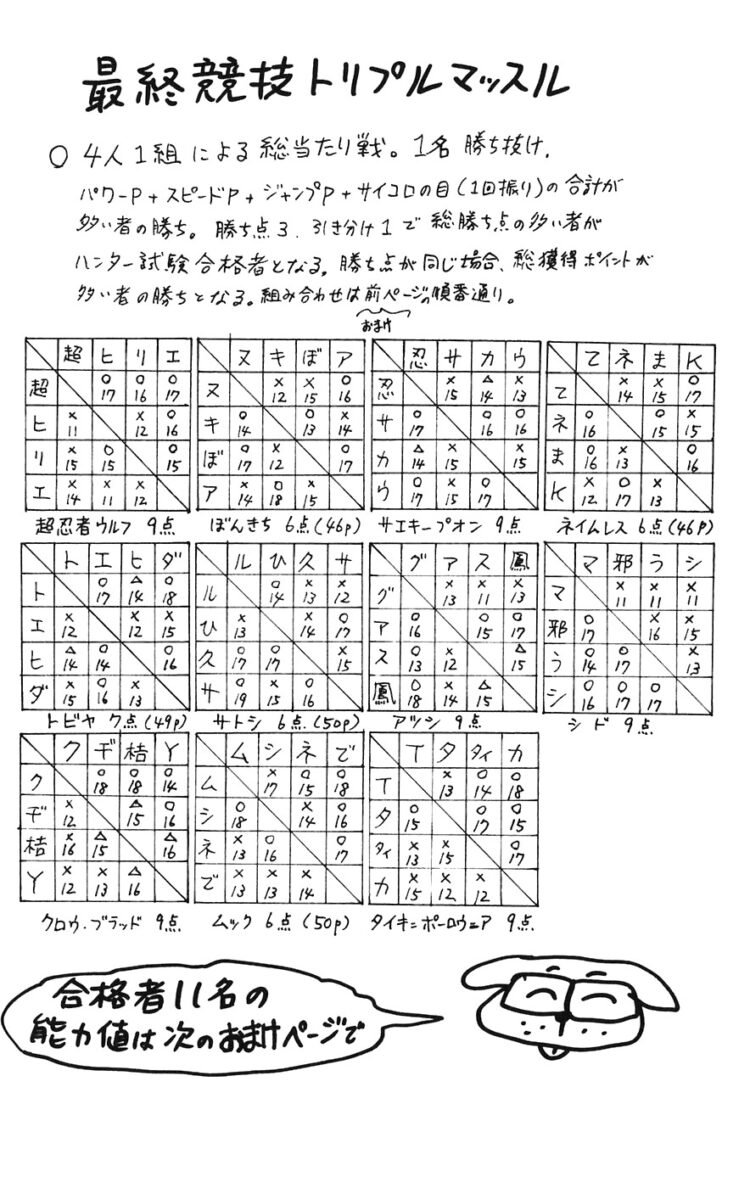 最終競技トリプルマッスル
○ 4人1組による総当たり戦。1名勝ち抜け.
パワーP + スピードP + ジャンプP + サイコロの目(1回振り)の合計が
多い者の勝ち。勝ち点3.引き分け1で総勝ち点の多い者が
ハンター試験合格者となる。勝ち点が同じ場合、総獲得ポイントが
多い者の勝ちとなる。組み合わせは前ページの順番通り。
おまけ
超 ヒ リ エ
超 ○17 ○16 ○17
ヒ ×11 ×12 ○16
リ ×15 ○15 ○15
エ ×14 ×11 ×12
超忍者ウルフ 9点
ヌ キ ぼ ア
ヌ ×12 ×15 ○16
キ ○14 ○13 ×14
ぼ ○17 ×12 ○17
ア ×14 ○18 ×15
ぼんきち 6点(46p)
忍 サ カ ウ
忍 ×15 △14 ×13
サ ○17 ○16 ○16
カ △14 ×15 ×15
ウ ○17 ×15 ○17
サエキープオン 9点
て ネ ま K
て ×14 ×15 ○17
ネ ○16 ○15 ×15
ま ○16 ×13 ○16
K ×12 ○17 ×13
ネイムレス 6点(46P)
ト エ ヒ ダ
ト ○17 △14 ○18
エ ×12 ×12 ×15
ヒ △14 ○14 ○16
ダ ×15 ○16 ×13
トビヤ 7点(49p)
ル ひ 久 サ
ル ○14 ×13 ×12
ひ ×13 ×14 ○17
久 ○17 ○17 ×15
サ ○19 ×15 ○16
サトシ 6点(50p)
グ ア ス 鳳
グ ×13 ×11 ×13
ア ○16 ○15 ○17
ス ○13 ×12 △15
鳳 ○18 ×14 △15
アツシ 9点
マ 邪 う シ
マ ×11 ×11 ×11
邪 ○17 ×16 ×15
う ○14 ○17 ×13
シ ○16 ○17 ○17
シド 9点
ク ヂ 桔 Y
ク ○18 ○18 ○14
ヂ ×12 △15 ○16
桔 ×16 △15 △16
Y ×12 ×13 △16
クロウ・ブラッド 9点
ム シ ネ で
ム ×17 ○15 ○18
シ ○18 ×14 ○16
ネ ×13 ○16 ○17
で ×13 ×13 ×14
ムック 6点(50p)
T タ タイ カ
T ×13 ○14 ○18
タ ○15 ○17 ○15
タイ ×13 ×15 ○17
カ ×15 ×12 ×12
タイキ=ポーロウェア 9点
合格者11名の
能力値は次のおまけページで